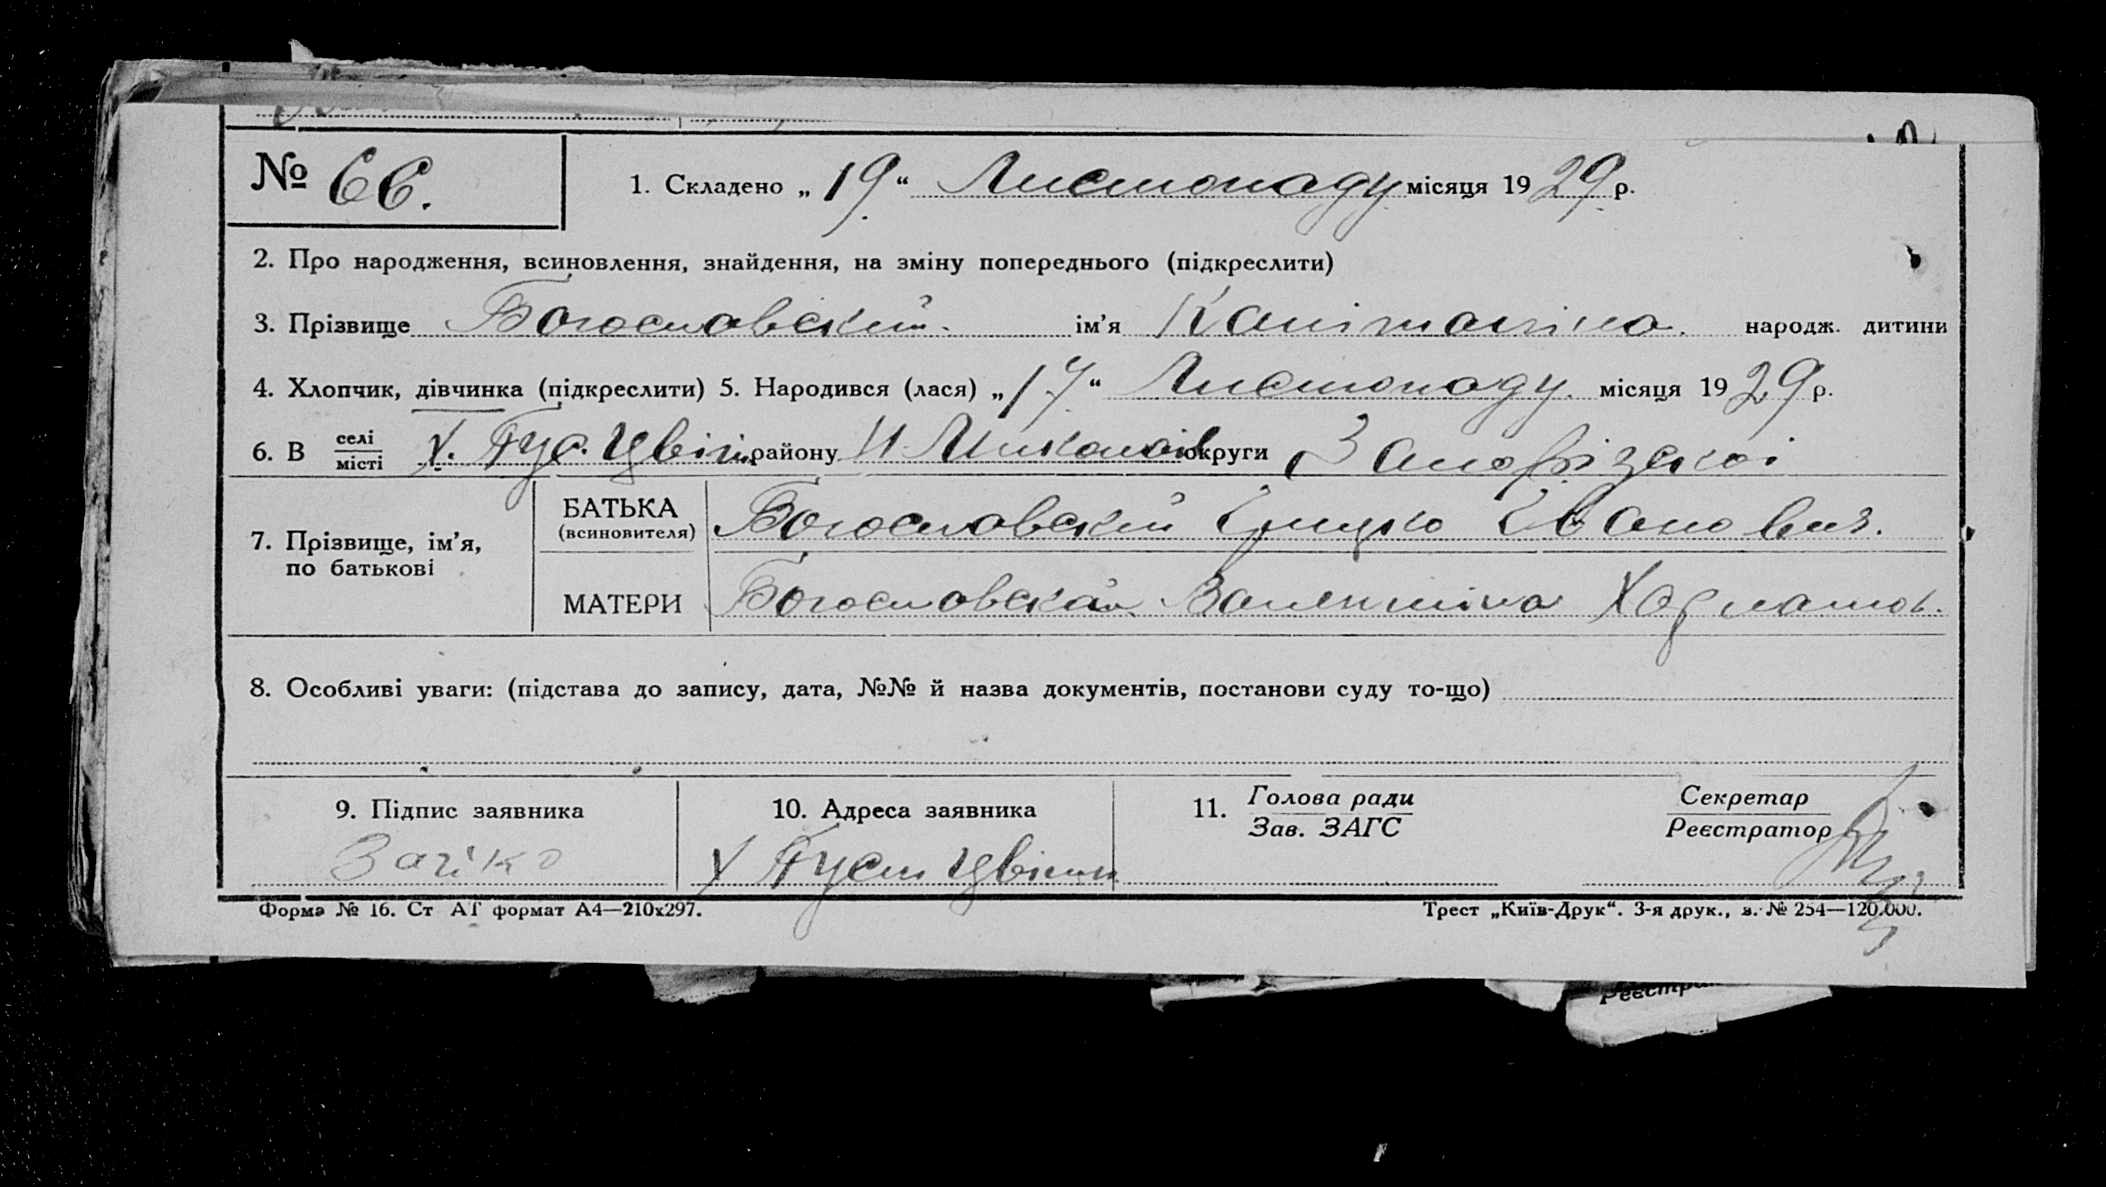 № 66.
1. Складено „19“ Листопаду місяця 1929 р.
2. Про народження, всиновлення, знайдення, на зміну попереднього (підкреслити)
3. Прізвище Богословский. ім’я народж. дитини
4. Хлопчик, дівчинка (підкреслити) 5. Народився (лася) „17“ Листопаду. місяця 1929 р.
6. В селі/місті Х. району Н округи
7. Прізвище, ім’я, по батькові
БАТЬКА (всиновителя) Богословский Грицко Іванович.
МАТЕРИ Богословская Валентіна
8. Особливі уваги: (підстава до запису, дата, №№ й назва документів, постанови суду то-що)
9. Підпис заявника
10. Адреса заявника
11. Голова ради/Зав. ЗАГС
Секретар/Реєстратор
Х
Форма № 16. Ст АТ формат А4—210х297.
Трест „Київ-Друк“. 3-я друк., з. № 254—120.000.